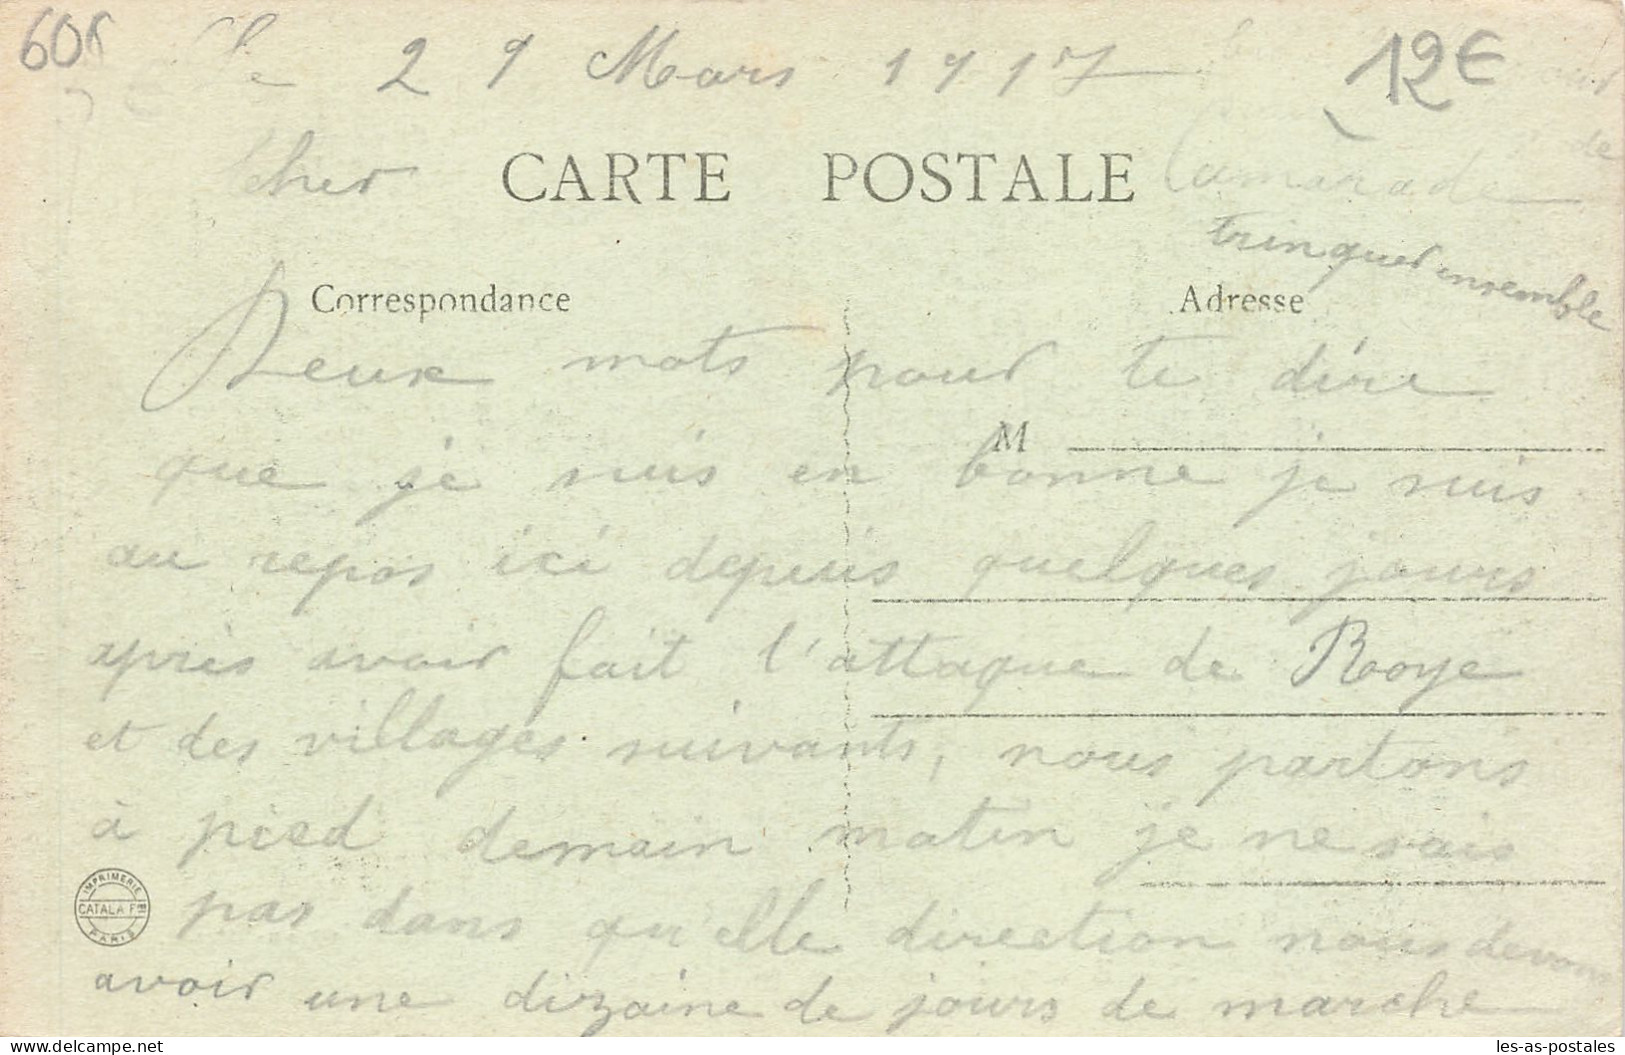 60
12€
Le 29 Mars 1917
CARTE POSTALE
Cher Camarade
de
trinquer ensemble
Correspondance
Adresse
Deux mots pour te dire
M
que je suis en bonne je suis
au repos ici depuis quelques jours
après avoir fait l'attaque de Roye
et des villages suivants, nous partons
à pied demain matin je ne sais
pas dans qu'elle direction nous devons
avoir une dizaine de jours de marche
IMPRIMERIE
CATALA FRES
PARIS
les-as-postales.com